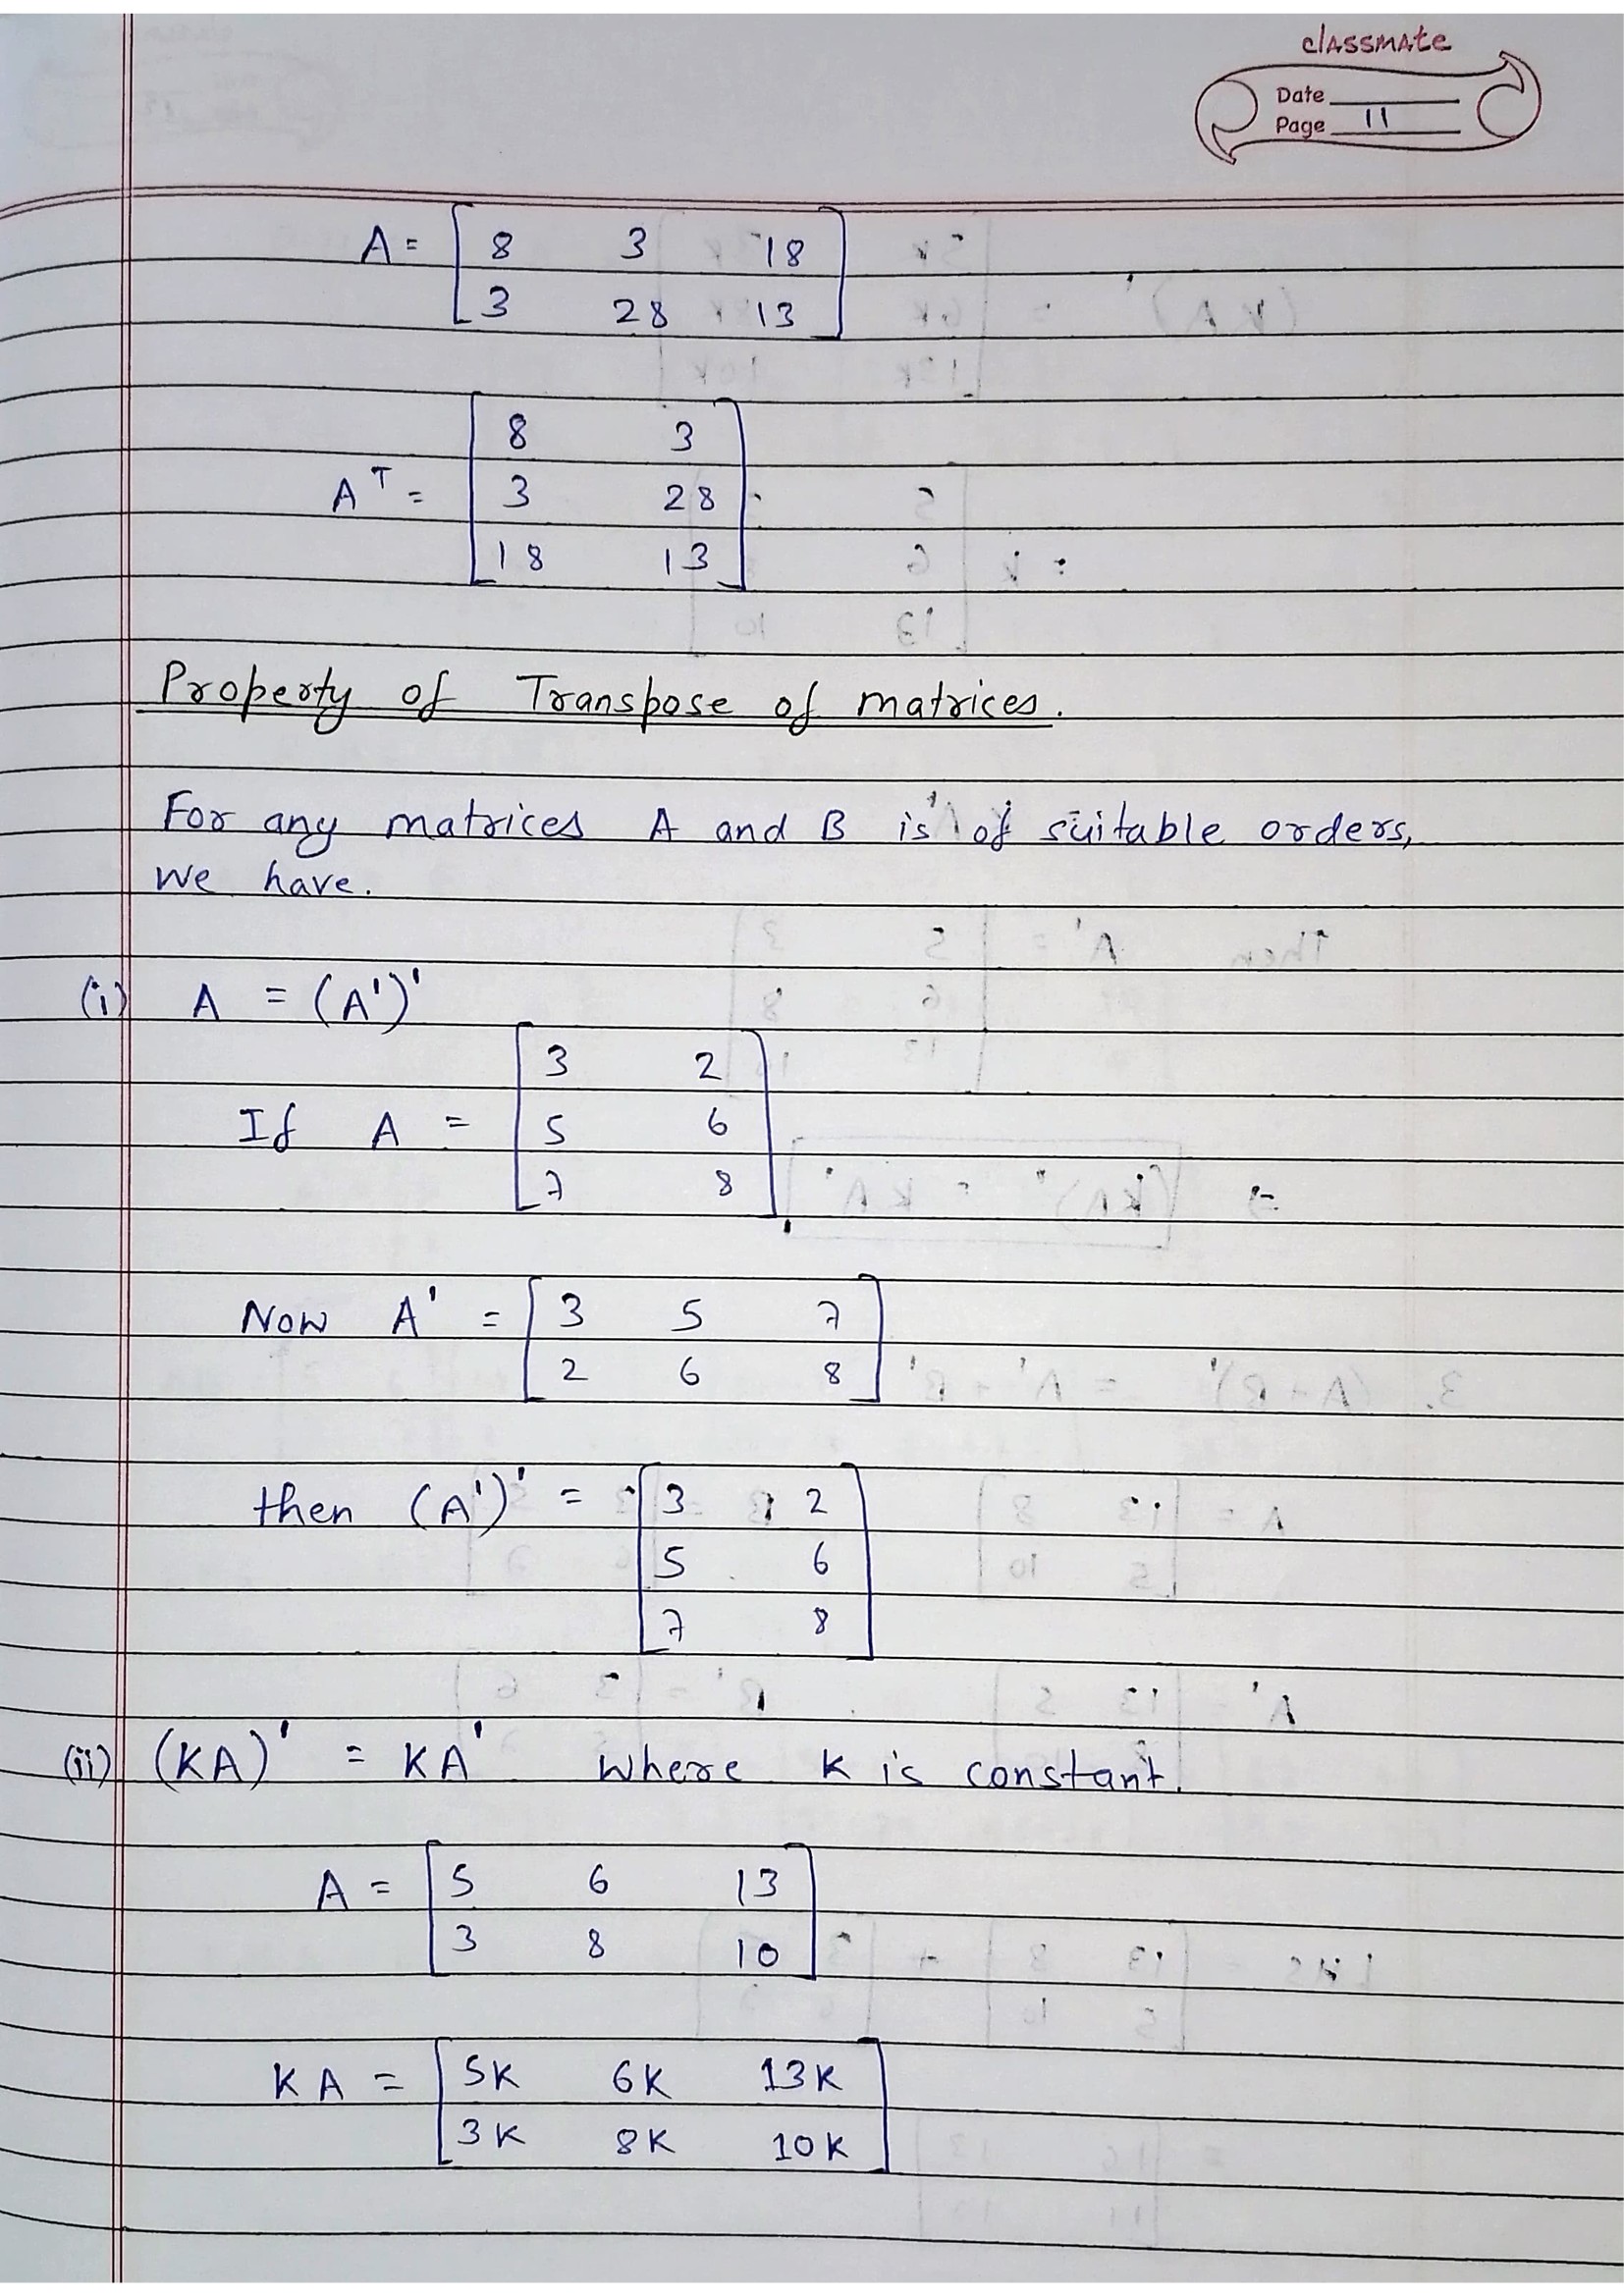 classmate
Date
Page 11
A = [ 8 3 18
3 28 13 ]
A^T = [ 8 3
3 28
18 13 ]
Property of Transpose of matrices.
For any matrices A and B is of suitable orders,
we have.
(i) A = (A')'
If A = [ 3 2
5 6
7 8 ]
Now A' = [ 3 5 7
2 6 8 ]
then (A')' = [ 3 2
5 6
7 8 ]
(ii) (KA)' = KA' where K is constant.
A = [ 5 6 13
3 8 10 ]
KA = [ 5K 6K 13K
3K 8K 10K ]